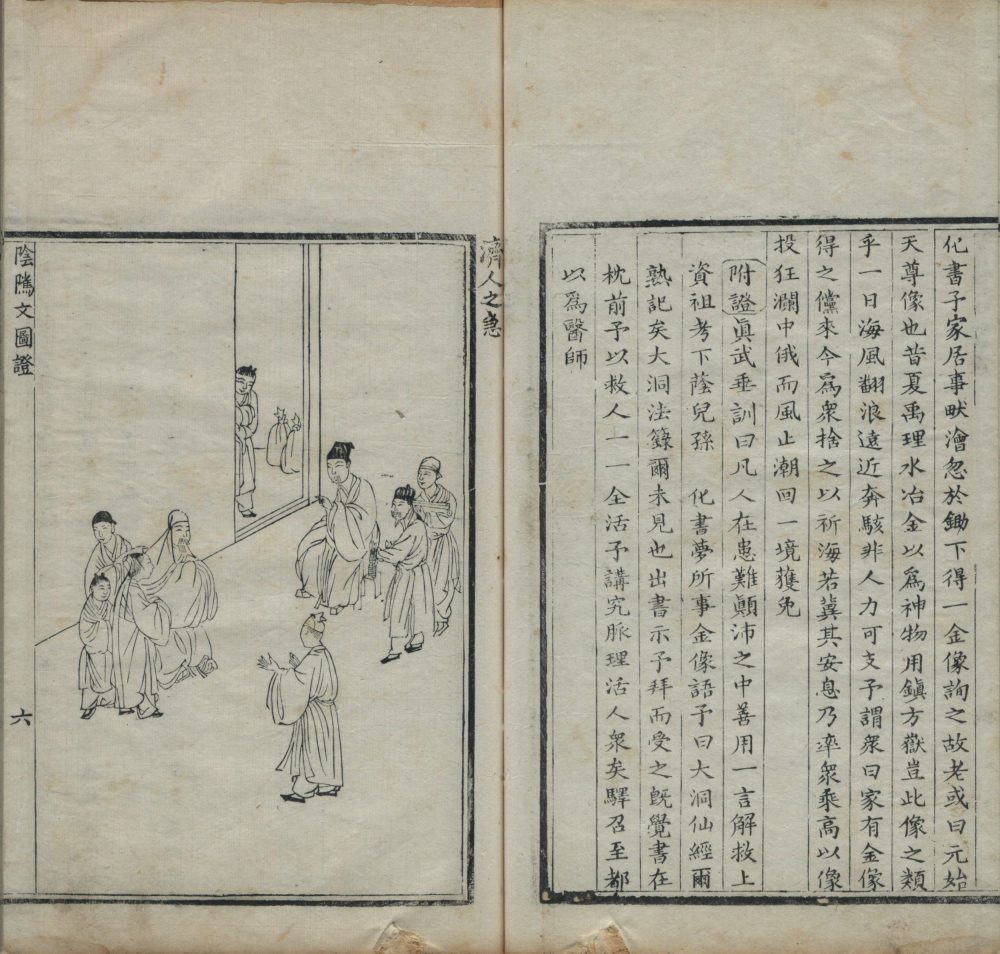 化書子家居事畎澮忽於鋤下得一金像詢之故老或曰元始
天尊像也昔夏禹理水冶金以爲神物用鎭方嶽豈此像之類
乎一日海風翻浪遠近奔駭非人力可支予謂衆曰家有金像
得之儻來今爲衆捨之以祈海若冀其安息乃率衆乘高以像
投狂瀾中俄而風止潮回一境獲免
附證眞武垂訓曰凡人在患難顚沛之中善用一言解救上
資祖考下蔭兒孫 化書夢所事金像語予曰大洞仙經爾
熟記矣大洞法籙爾未見也出書示予拜而受之旣覺書在
枕前予以救人一一全活予講究脈理活人衆矣驛召至都
以爲醫師
濟人之急
陰隲文圖證
六